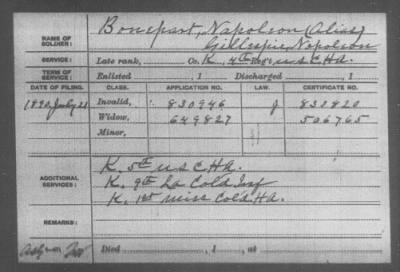 NAME OF SOLDIER: Bonepart, Napoleon (Alias)
Gillespie, Napoleon
SERVICE: Late rank, Co. K, 4th Reg't U S C HA.
TERM OF SERVICE: Enlisted , 1 Discharged , 1
DATE OF FILING. CLASS. APPLICATION NO. LAW. CERTIFICATE NO.
1890, July 21 Invalid, 830946 J 830820
Widow, 649827 506765
Minor,
ADDITIONAL SERVICES: K. 5th U S C HA.
K. 9th La Cold Inf
K. 1st Miss Cold HA.
REMARKS:
Died , 1 , at